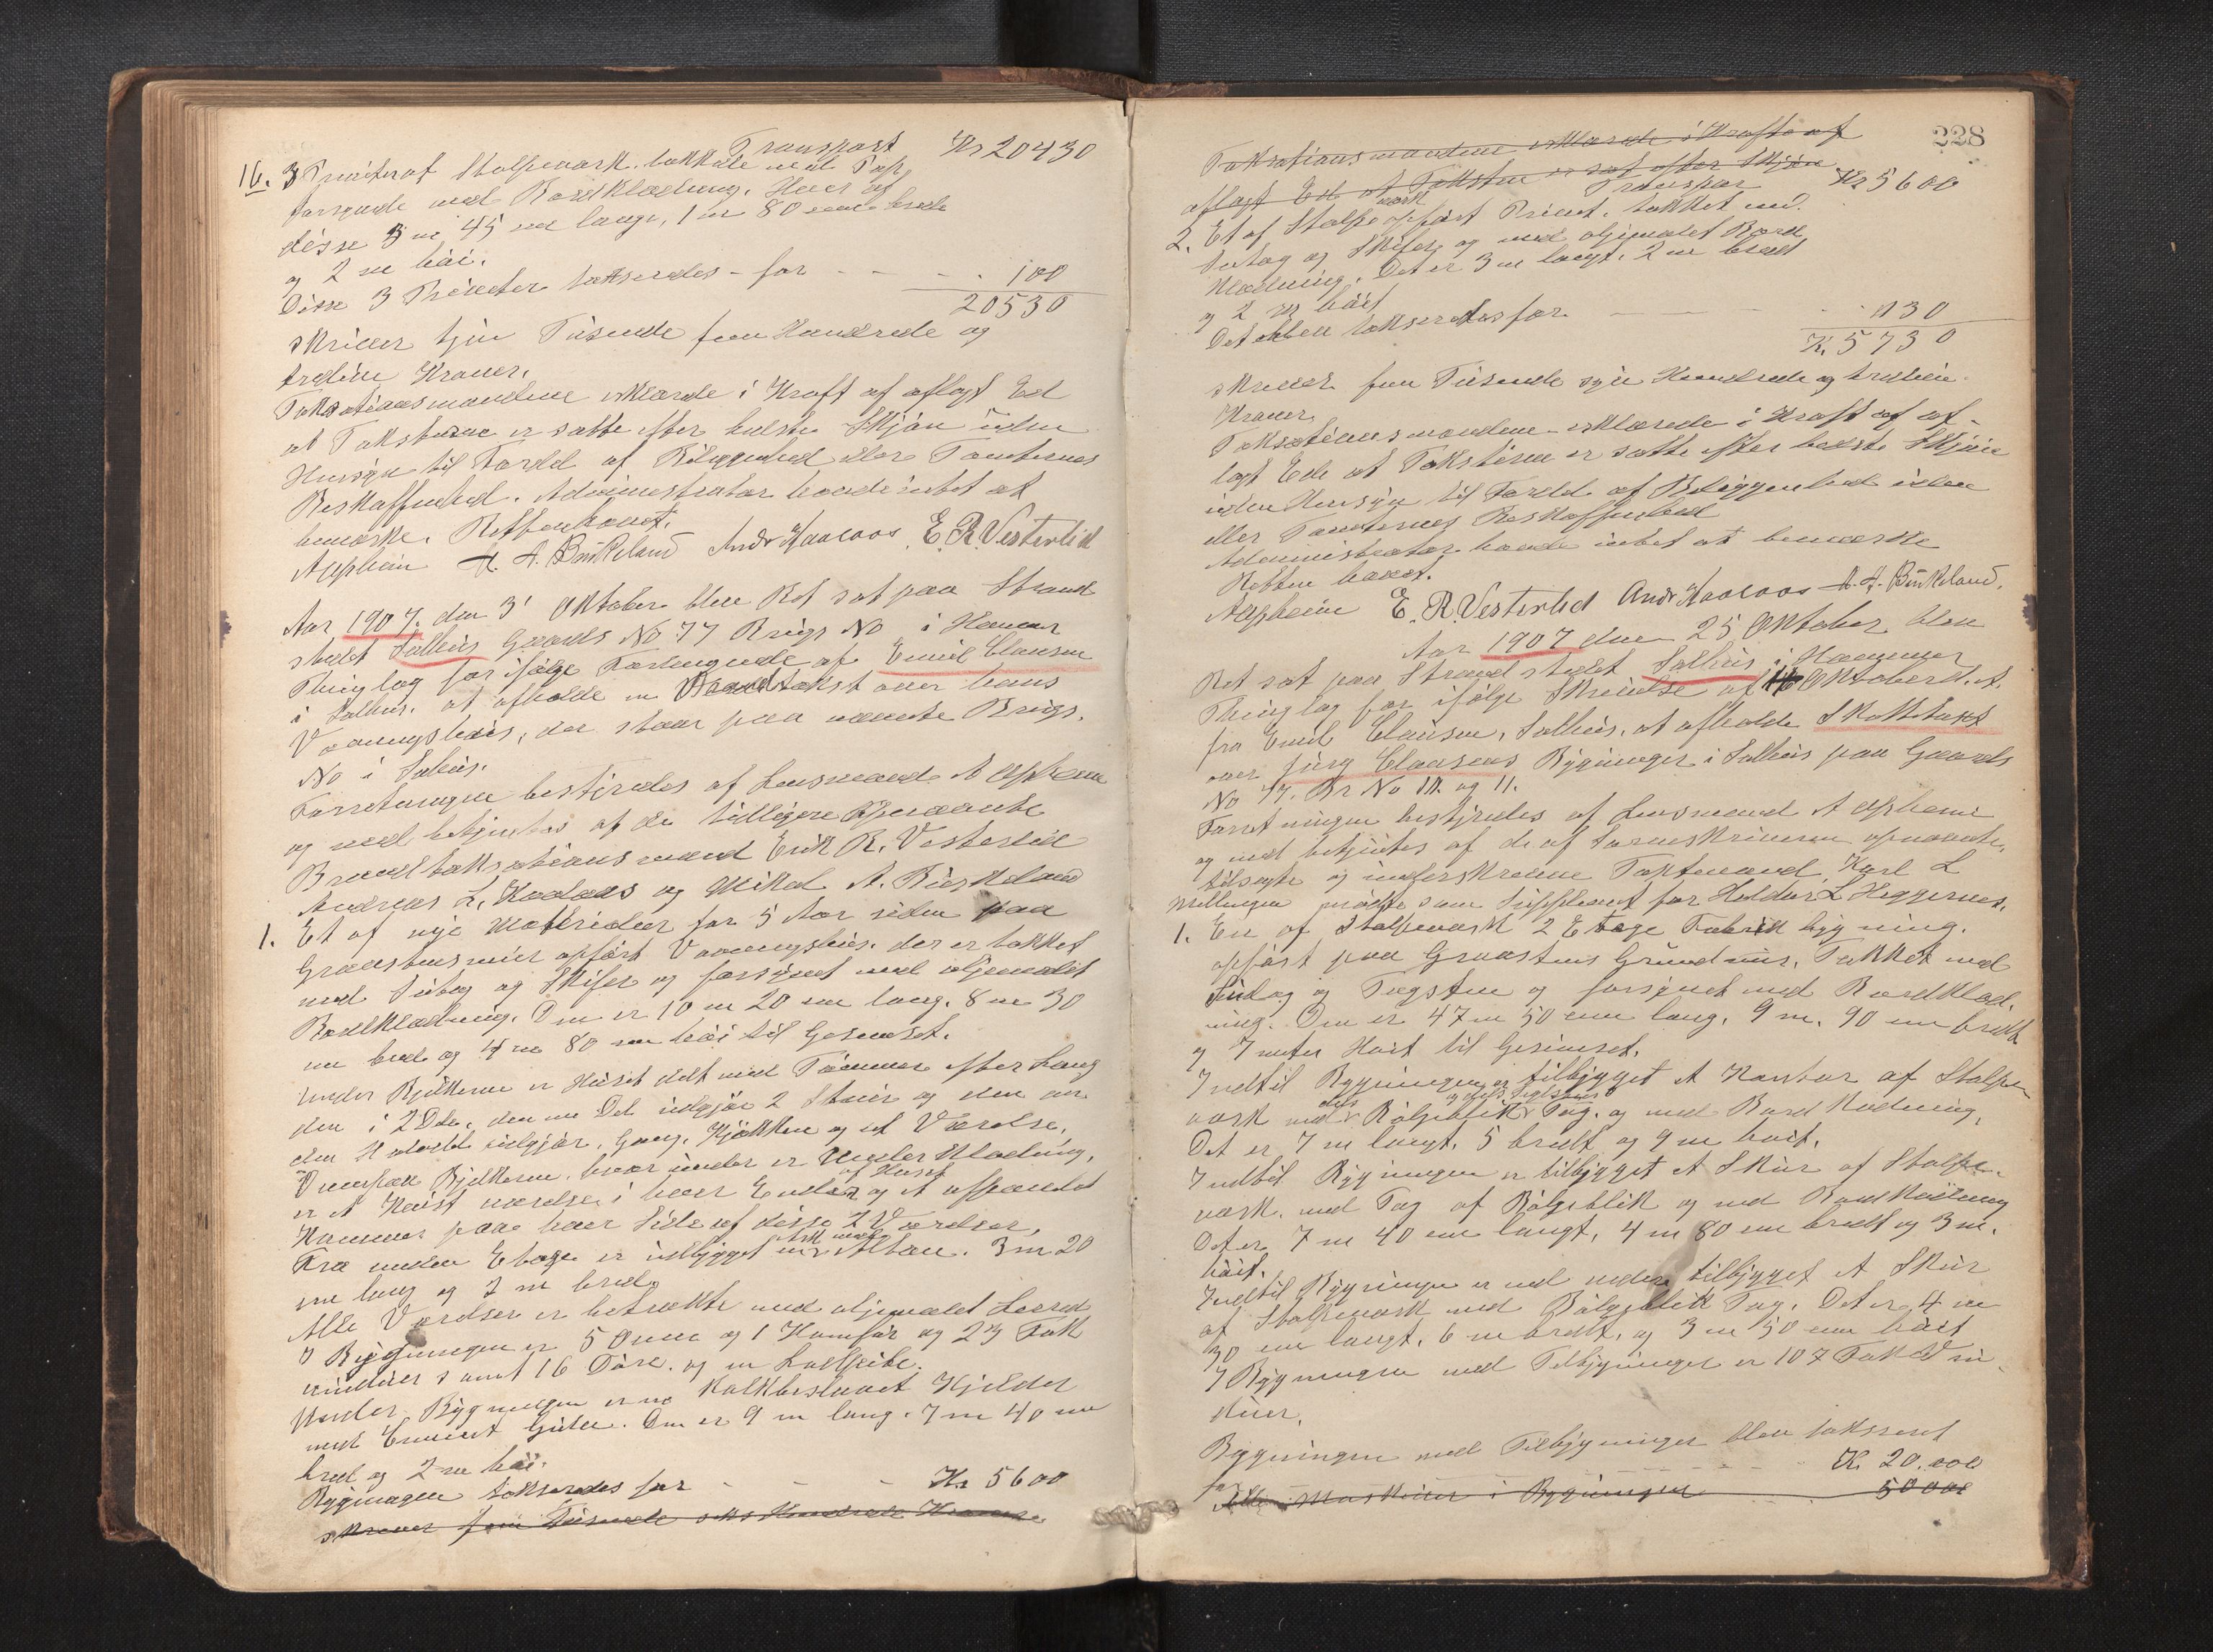 Transport Kr 20430
16. 3 Privéter af Stolpeværk. tækkede med Tag
forsynede med Bordklædning. Hver af
disse 3 m 45 cm lange, 1 m 80 cm brede
og 2 m høi.
Disse 3 Privéter takseredes for - - - - 100
20530
skriver tyve Tusende fem Hundrede og
tredive Kroner.
Taksationsmændene erklærede i Kraft af aflagt Ed
at Taksterne er satte efter bedste Skjøn uden
Hensyn til Værdd af Beliggenhed eller Tomternes
Beskaffenhed. Administrator havde intet at
bemærke. Retten hævet.
A Upheim A. A. Birkeland Andr Haaloos. E. R. Vesterlid
Aar 1907. den 3' Oktober blev Ret sat paa Strand
stedet Salhus Gaards No 77 Brugs No i Hammer
Thinglag for ifølge Forlangende af Emil Clausen
i Salhus. at afholde en Brandtakst over hans
Vaaningshus, der staar paa nævnte Brugs.
No i Salhus.
Forretningen bestyredes af Lensmand A Upheim
og med betjentes af de tidligere Opnævnte
Brandtaksationsmænd Erik R. Vesterlid
Andreas L. Haaloos og Mikal A. Birkeland
1. Et af nye Materialer for 5 Aar siden paa
Graastensmur opført Vaaningshus. der er tækket
med Sutag og Skifer og forsynet med oljemalet
Bordklædning. Den er 10 m 20 cm lang. 8 m 30
cm bred og 4 m 80 cm høi til Gesimset.
Under Bjelkerne er Huset delt med Tømmer efter Læng
den i 2 Dele, den ene Del udgjør 2 Stuer og den an
den Halvdel udgjør, Gang, Kjøkken og et Værelse.
Ovenpaa Bjelkerne. hvor under er Underklædning,
er et Kvist værelse i hver Ende af Huset og et afpanelet
Kammer paa hver Side af disse 2 Værelser,
Fra anden Etage er udbygget en Ark med Altan. 3 m 20
cm lang og 2 m bred.
Alle Værelser er betrækte med oljemalet Lærred
I Bygningen er 5 Ovne og 1 Komfur og 23 Fak
vinduer samt 16 Døre. og en Luftpibe.
Under Bygningen er en Kalkbeslaaet Kjelder
med Cement Gulv. Den er 9 m lang. 7 m 40 cm
bred og 2 m høi.
Bygningen takseredes for - - - Kr 5600
skriver fem Tusende seks Hundrede Kroner.
228
Taksationsmændene erklærede i Kraft af
aflagt Ed at Taksten er sat efter Skjøn
Transport Kr 5600
2. Et af Stolpeværk opført Privet. tækket med
Sutag og Skifer og med oljemalet Bord
klædning. Det er 3 m langt. 2 m bredt
og 2 m høit
Det bliver takseredes for - - - - 130
Kr. 5730
skriver fem Tusende syv Hundrede og tredive
Kroner
Taksationsmændene erklærede i Kraft af af-
lagt Ede at Taksterne er satte efter bedste Skjøn
uden Hensyn til Værdd af Beliggenhed uden
eller Tomternes Beskaffenhed
Administrator havde intet at bemærke
Retten hævet.
A Upheim E. R. Vesterlid Andr Haaloos A. A. Birkeland.
Aar 1907 den 25 Oktober blev
Ret sat paa Strandstedet Salhus i Hammer
Thinglag for ifølge Skrivelse af 16 Oktober d. A.
fra Emil Clausen, Salhus, at afholde Skattetakst
over Jürg Clausens Bygninger i Salhus paa Gaards
No 77. Br No 10. og 11.
Forretningen bestyredes af Lensmand A Upheim
og med betjentes af de af Sorenskriveren opnævnte,
tilsagte og underskrevne Takstmænd, Karl L
Mellingen mødte som Suppleant for Haldor L Heggernes.
1. En af Stolpeværk 2 Etage Fabrik bygning.
opført paa Graastens Grundmur. Tækket med
Sutag og Tagsten og forsynet med Bordklæd.
ning. Den er 47 m 50 cm lang. 9 m. 90 cm bredt
og 7 meter Høit til Gesimset.
Indtil Bygningen er tilbygget et Kontor af Stolpe
værk med dels Bølgeblik og dels Teglstens Tag. og med Bordklædning,
Det er 7 m langt. 5 bredt og 9 m høit.
Indtil Bygningen er tilbygget et Skur af Stolpe-
værk. med Tag af Bølgeblik og med Bordklædning
Det er 7 m 40 cm langt, 4 m 80 cm bredt og 3 m.
høit.
Indtil Bygningen er ved enden tilbygget et Skur
af Stolpeværk med Bølgeblik Tag. Det er 4 m
30 cm langt. 6 m bredt. og 3 m 50 cm høit
I Bygningen med Tilbygninger er 107 Fak Vin-
duer.
Bygningen med Tilbygninger blev takseret
for - - - - Kr. 20.000
Alle Maskiner i Bygningen - - - 50 000